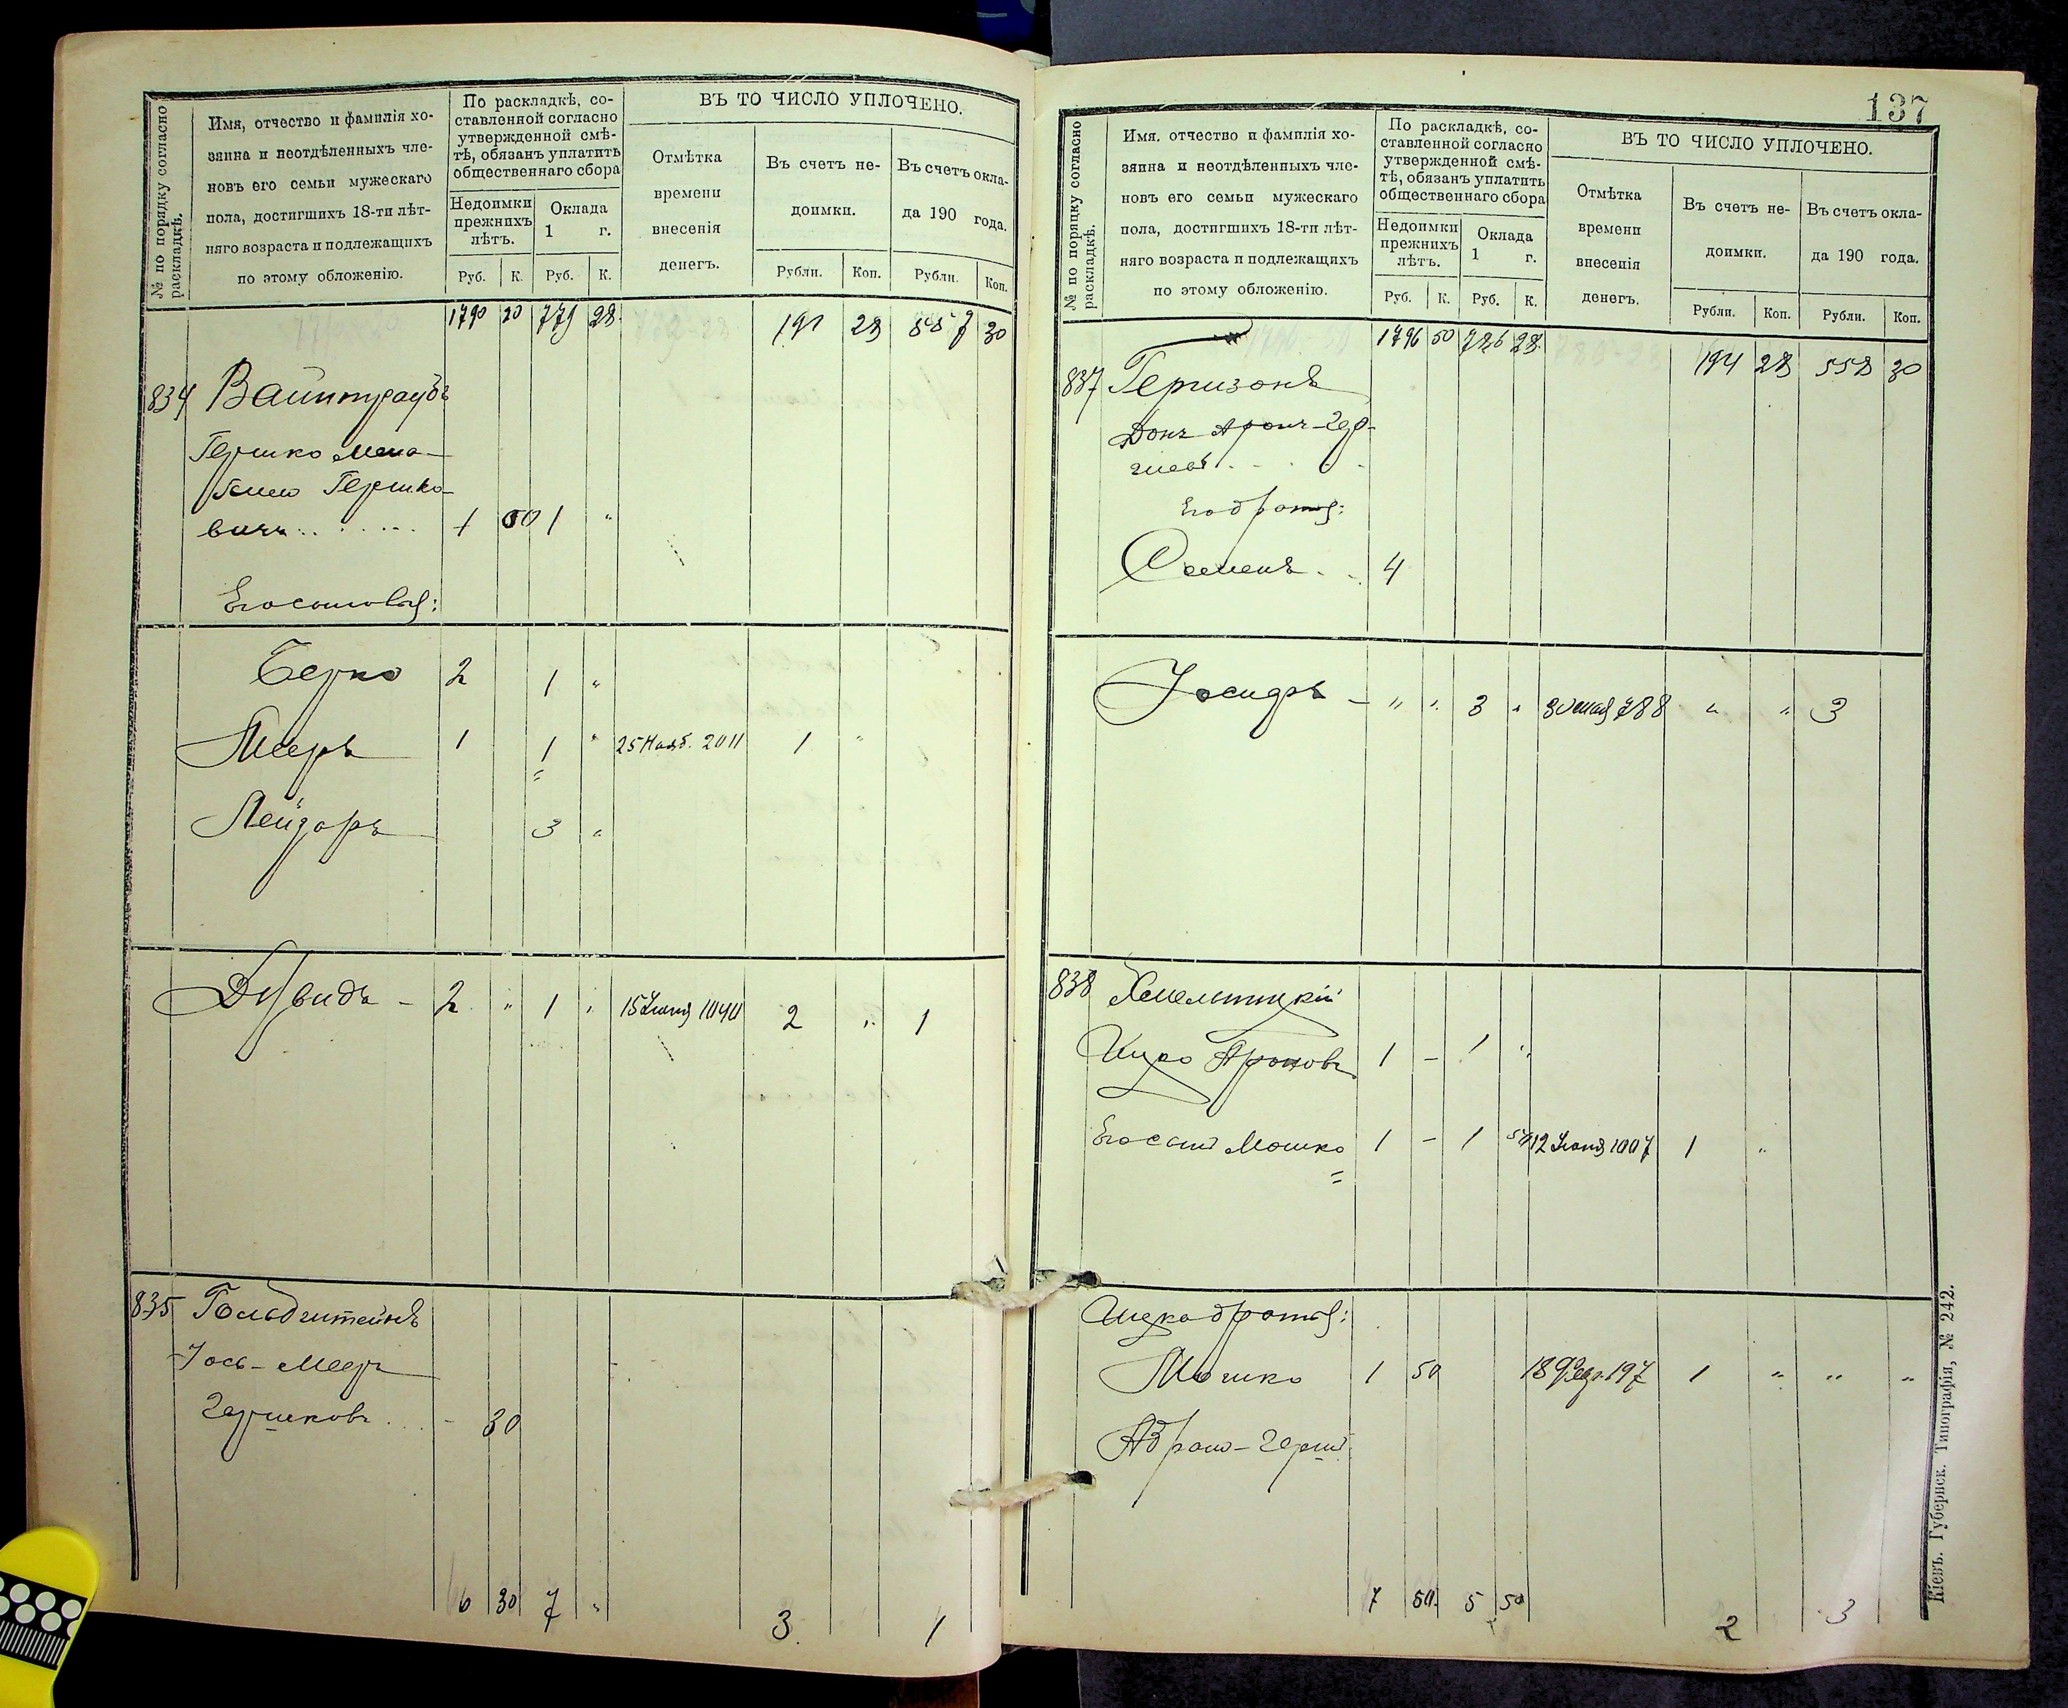 № по порядку согласно раскладкѣ.
Имя, отчество и фамилія хо-
зяина и неотдѣленныхъ чле-
новъ его семьи мужескаго
пола, достигшихъ 18-ти лѣт-
няго возраста и подлежащихъ
по этому обложенію.
По раскладкѣ, со-
ставленной согласно
утвержденной смѣ-
тѣ, обязанъ уплатить
общественнаго сбора
Недоимки
прежнихъ
лѣтъ.
Оклада
1 г.
Руб. К. Руб. К.
ВЪ ТО ЧИСЛО УПЛОЧЕНО.
Отмѣтка
времени
внесенія
денегъ.
Въ счетъ не-
доимки.
Въ счетъ окла-
да 190 года.
Рубли. Коп. Рубли. Коп.
1790 20 779 28 191 28 557 30
834 Вайнтраубъ
Гершко
Гершко-
вичъ 1 50 1 "
Его сыновья:
Берко 2 1 "
Мееръ 1 1 " 25 Нояб. 2011 1 "
Лейзоръ 3 "
Дувидъ - 2 " 1 " 15 Іюня 1040 2 " 1
835 Гольдштейнъ
Іось-Меер
Гершковъ - 30
6 30 7 " 3 1
137
№ по порядку согласно раскладкѣ.
Имя, отчество и фамилія хо-
зяина и неотдѣленныхъ чле-
новъ его семьи мужескаго
пола, достигшихъ 18-ти лѣт-
няго возраста и подлежащихъ
по этому обложенію.
По раскладкѣ, со-
ставленной согласно
утвержденной смѣ-
тѣ, обязанъ уплатить
общественнаго сбора
Недоимки
прежнихъ
лѣтъ.
Оклада
1 г.
Руб. К. Руб. К.
ВЪ ТО ЧИСЛО УПЛОЧЕНО.
Отмѣтка
времени
внесенія
денегъ.
Въ счетъ не-
доимки.
Въ счетъ окла-
да 190 года.
Рубли. Коп. Рубли. Коп.
1796 50 786 28 194 28 558 30
837 Гершзонъ
Его братья:
Семенъ 4
Исидръ - " " 3 " 30 мая 788 " " 3
838 Хмельницкій
Ицко Ароновъ 1 - 1 "
Его сын Мошко 1 - 1 50 12 Іюня 1007 1 "
Ицка братья:
Мошко 1 50 18 Февр. 197 1 " " "
Абрам-Герш
7 50 5 50 2 3
Кіевъ. Губернск. Типографія, № 242.